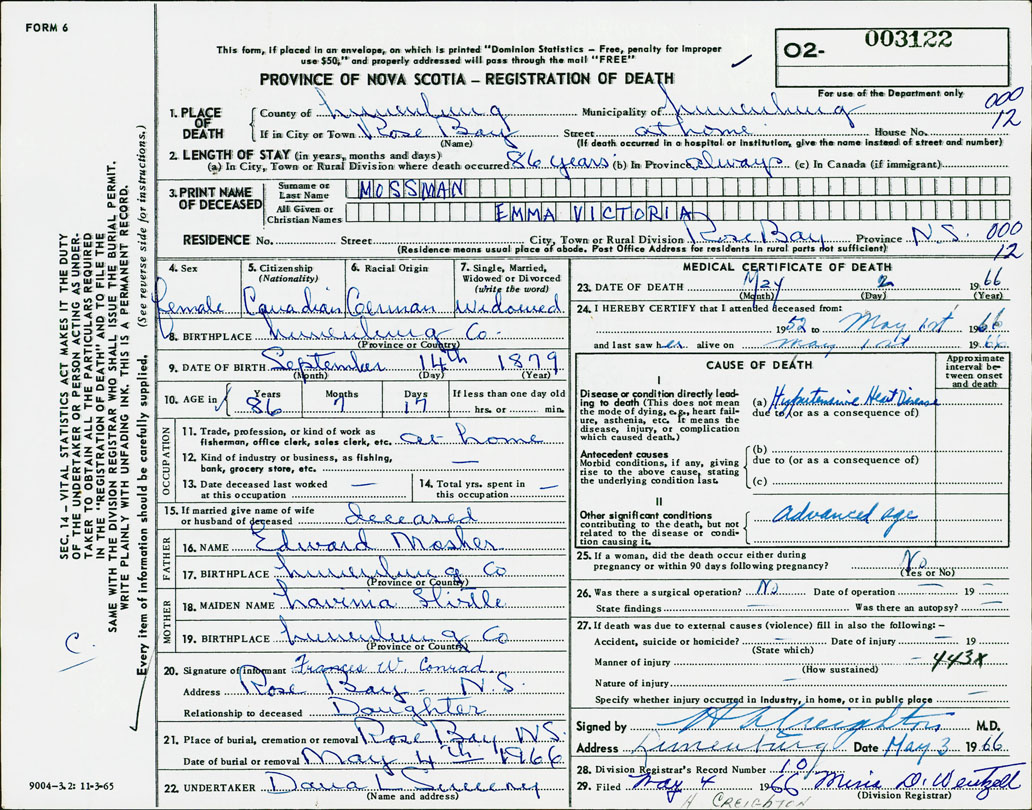 FORM 6
This form, if placed in an envelope, on which is printed "Dominion Statistics – Free, penalty for improper
use $50," and properly addressed will pass through the mail "FREE"
PROVINCE OF NOVA SCOTIA – REGISTRATION OF DEATH
O2- 003122
For use of the Department only
000
12
1. PLACE OF DEATH County of Lunenburg Municipality of Lunenburg
If in City or Town Rose Bay Street at home House No.
(Name) (If death occurred in a hospital or institution, give the name instead of street and number)
2. LENGTH OF STAY (in years, months and days)
(a) In City, Town or Rural Division where death occurred 86 years (b) In Province always (c) In Canada (if immigrant)
3. PRINT NAME OF DECEASED Surname or Last Name MOSSMAN
All Given or Christian Names EMMA VICTORIA
RESIDENCE No. Street City, Town or Rural Division Rose Bay Province N.S. 000
(Residence means usual place of abode. Post Office Address for residents in rural parts not sufficient) 12
4. Sex 5. Citizenship (Nationality) 6. Racial Origin 7. Single, Married, Widowed or Divorced (write the word)
female Canadian German Widowed
8. BIRTHPLACE Lunenburg Co.
(Province or Country)
9. DATE OF BIRTH September 14th 1879
(Month) (Day) (Year)
10. AGE in Years Months Days If less than one day old
86 7 17 hrs. or min.
OCCUPATION
11. Trade, profession, or kind of work as
fisherman, office clerk, sales clerk, etc. at home
12. Kind of industry or business, as fishing,
bank, grocery store, etc. —
13. Date deceased last worked at this occupation — 14. Total yrs. spent in this occupation —
15. If married give name of wife
or husband of deceased deceased
FATHER
16. NAME Edward Mosher
17. BIRTHPLACE Lunenburg Co
(Province or Country)
MOTHER
18. MAIDEN NAME Lavinia
19. BIRTHPLACE Lunenburg Co
(Province or Country)
20. Signature of informant Frances W. Conrad
Address Rose Bay - N.S.
Relationship to deceased Daughter
21. Place of burial, cremation or removal Rose Bay N.S.
Date of burial or removal May 4th 1966
22. UNDERTAKER Dana L Sweeny
(Name and address)
MEDICAL CERTIFICATE OF DEATH
23. DATE OF DEATH May 2 1966
(Month) (Day) (Year)
24. I HEREBY CERTIFY that I attended deceased from:
1952 to May 1st 1966
and last saw her alive on May 1st 1966
CAUSE OF DEATH
Approximate interval between onset and death
I
Disease or condition directly leading to death (This does not mean
the mode of dying, e.g., heart failure, asthenia, etc. It means the
disease, injury, or complication
which caused death.)
(a) Hypertensive Heart Disease
due to (or as a consequence of)
Antecedent causes
Morbid conditions, if any, giving
rise to the above cause, stating
the underlying condition last.
(b)
due to (or as a consequence of)
(c)
II
Other significant conditions
contributing to the death, but not
related to the disease or condition causing it.
Advanced age
25. If a woman, did the death occur either during
pregnancy or within 90 days following pregnancy? No
(Yes or No)
26. Was there a surgical operation? No Date of operation — 19 —
State findings — Was there an autopsy? —
27. If death was due to external causes (violence) fill in also the following: –
Accident, suicide or homicide? — Date of injury — 19
(State which)
Manner of injury — 443X
(How sustained)
Nature of injury —
Specify whether injury occurred in industry, in home, or in public place —
Signed by H Creighton M.D.
Address Lunenburg Date May 3 1966
28. Division Registrar's Record Number 10
29. Filed May 4 1966 D. Wentzell
(Division Registrar)
H CREIGHTON
SEC. 14 – VITAL STATISTICS ACT MAKES IT THE DUTY
OF THE UNDERTAKER OR PERSON ACTING AS UNDER-
TAKER TO OBTAIN ALL THE PARTICULARS REQUIRED
IN THE "REGISTRATION OF DEATH" AND TO FILE THE
SAME WITH THE DIVISION REGISTRAR WHO SHALL ISSUE THE BURIAL PERMIT.
WRITE PLAINLY WITH UNFADING INK. THIS IS A PERMANENT RECORD.
Every item of information should be carefully supplied. (See reverse side for instructions.)
C.
9004-3.2: 11-3-65